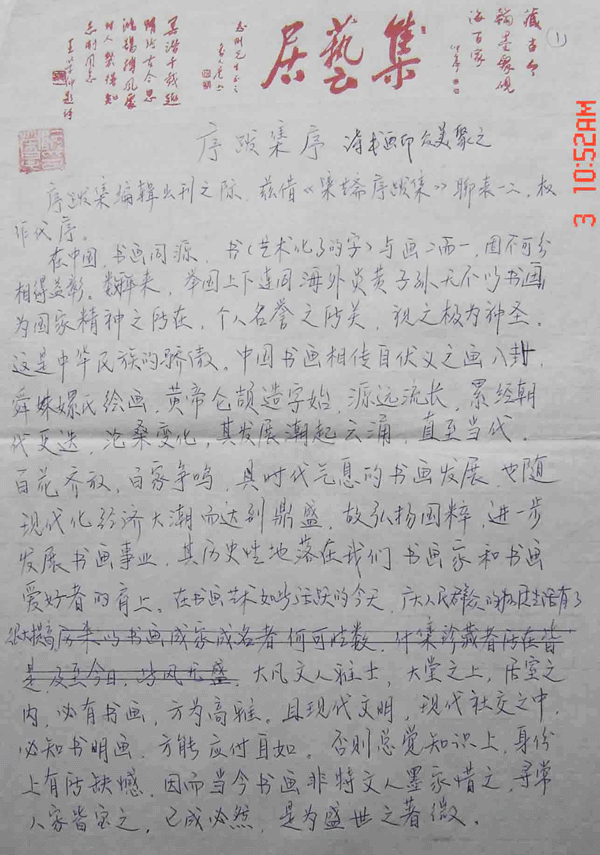 藏古今
翰墨聚砚
海百家
①
集藝居
序跋集序 得书画印众美聚之
序跋集编辑出刊之际，兹借《集古斋序跋集》聊表一二，权
作代序。
在中国，书画同源，书（艺术化了的字）与画二而一，固不可分
相得益彰。数年来，举国上下连同海外炎黄子孙无不以书画
为国家精神之所在，个人名誉之所关，视之极为神圣。
这是中华民族的骄傲。中国书画相传自伏义之画八卦，
舜妹嫘氏绘画，黄帝仓颉造字始，源远流长，累经朝
代更迭，沧桑变化，其发展潮起云涌，直至当代。
百花齐放，百家争鸣，具时代气息的书画发展，也随
现代化经济大潮而达到鼎盛，故弘扬国粹，进一步
发展书画事业，其历史性地落在我们书画家和书画
爱好者的肩上。在书画艺术如此活跃的今天，广大人民群众的物质生活有了
很大提高历来以书画成家成名者何可胜数，什集珍藏者所在皆
是及至今日，此风尤盛。大凡文人雅士，大堂之上，居室之
内，必有书画，方为高雅。且现代文明，现代社交之中，
必知书明画，方能应付自如。否则总觉知识上，身份
上有所缺憾，因而当今书画非特文人墨家惜之，寻常
人家皆宝之，已成必然，是为盛世之著微。
3 10:52AM